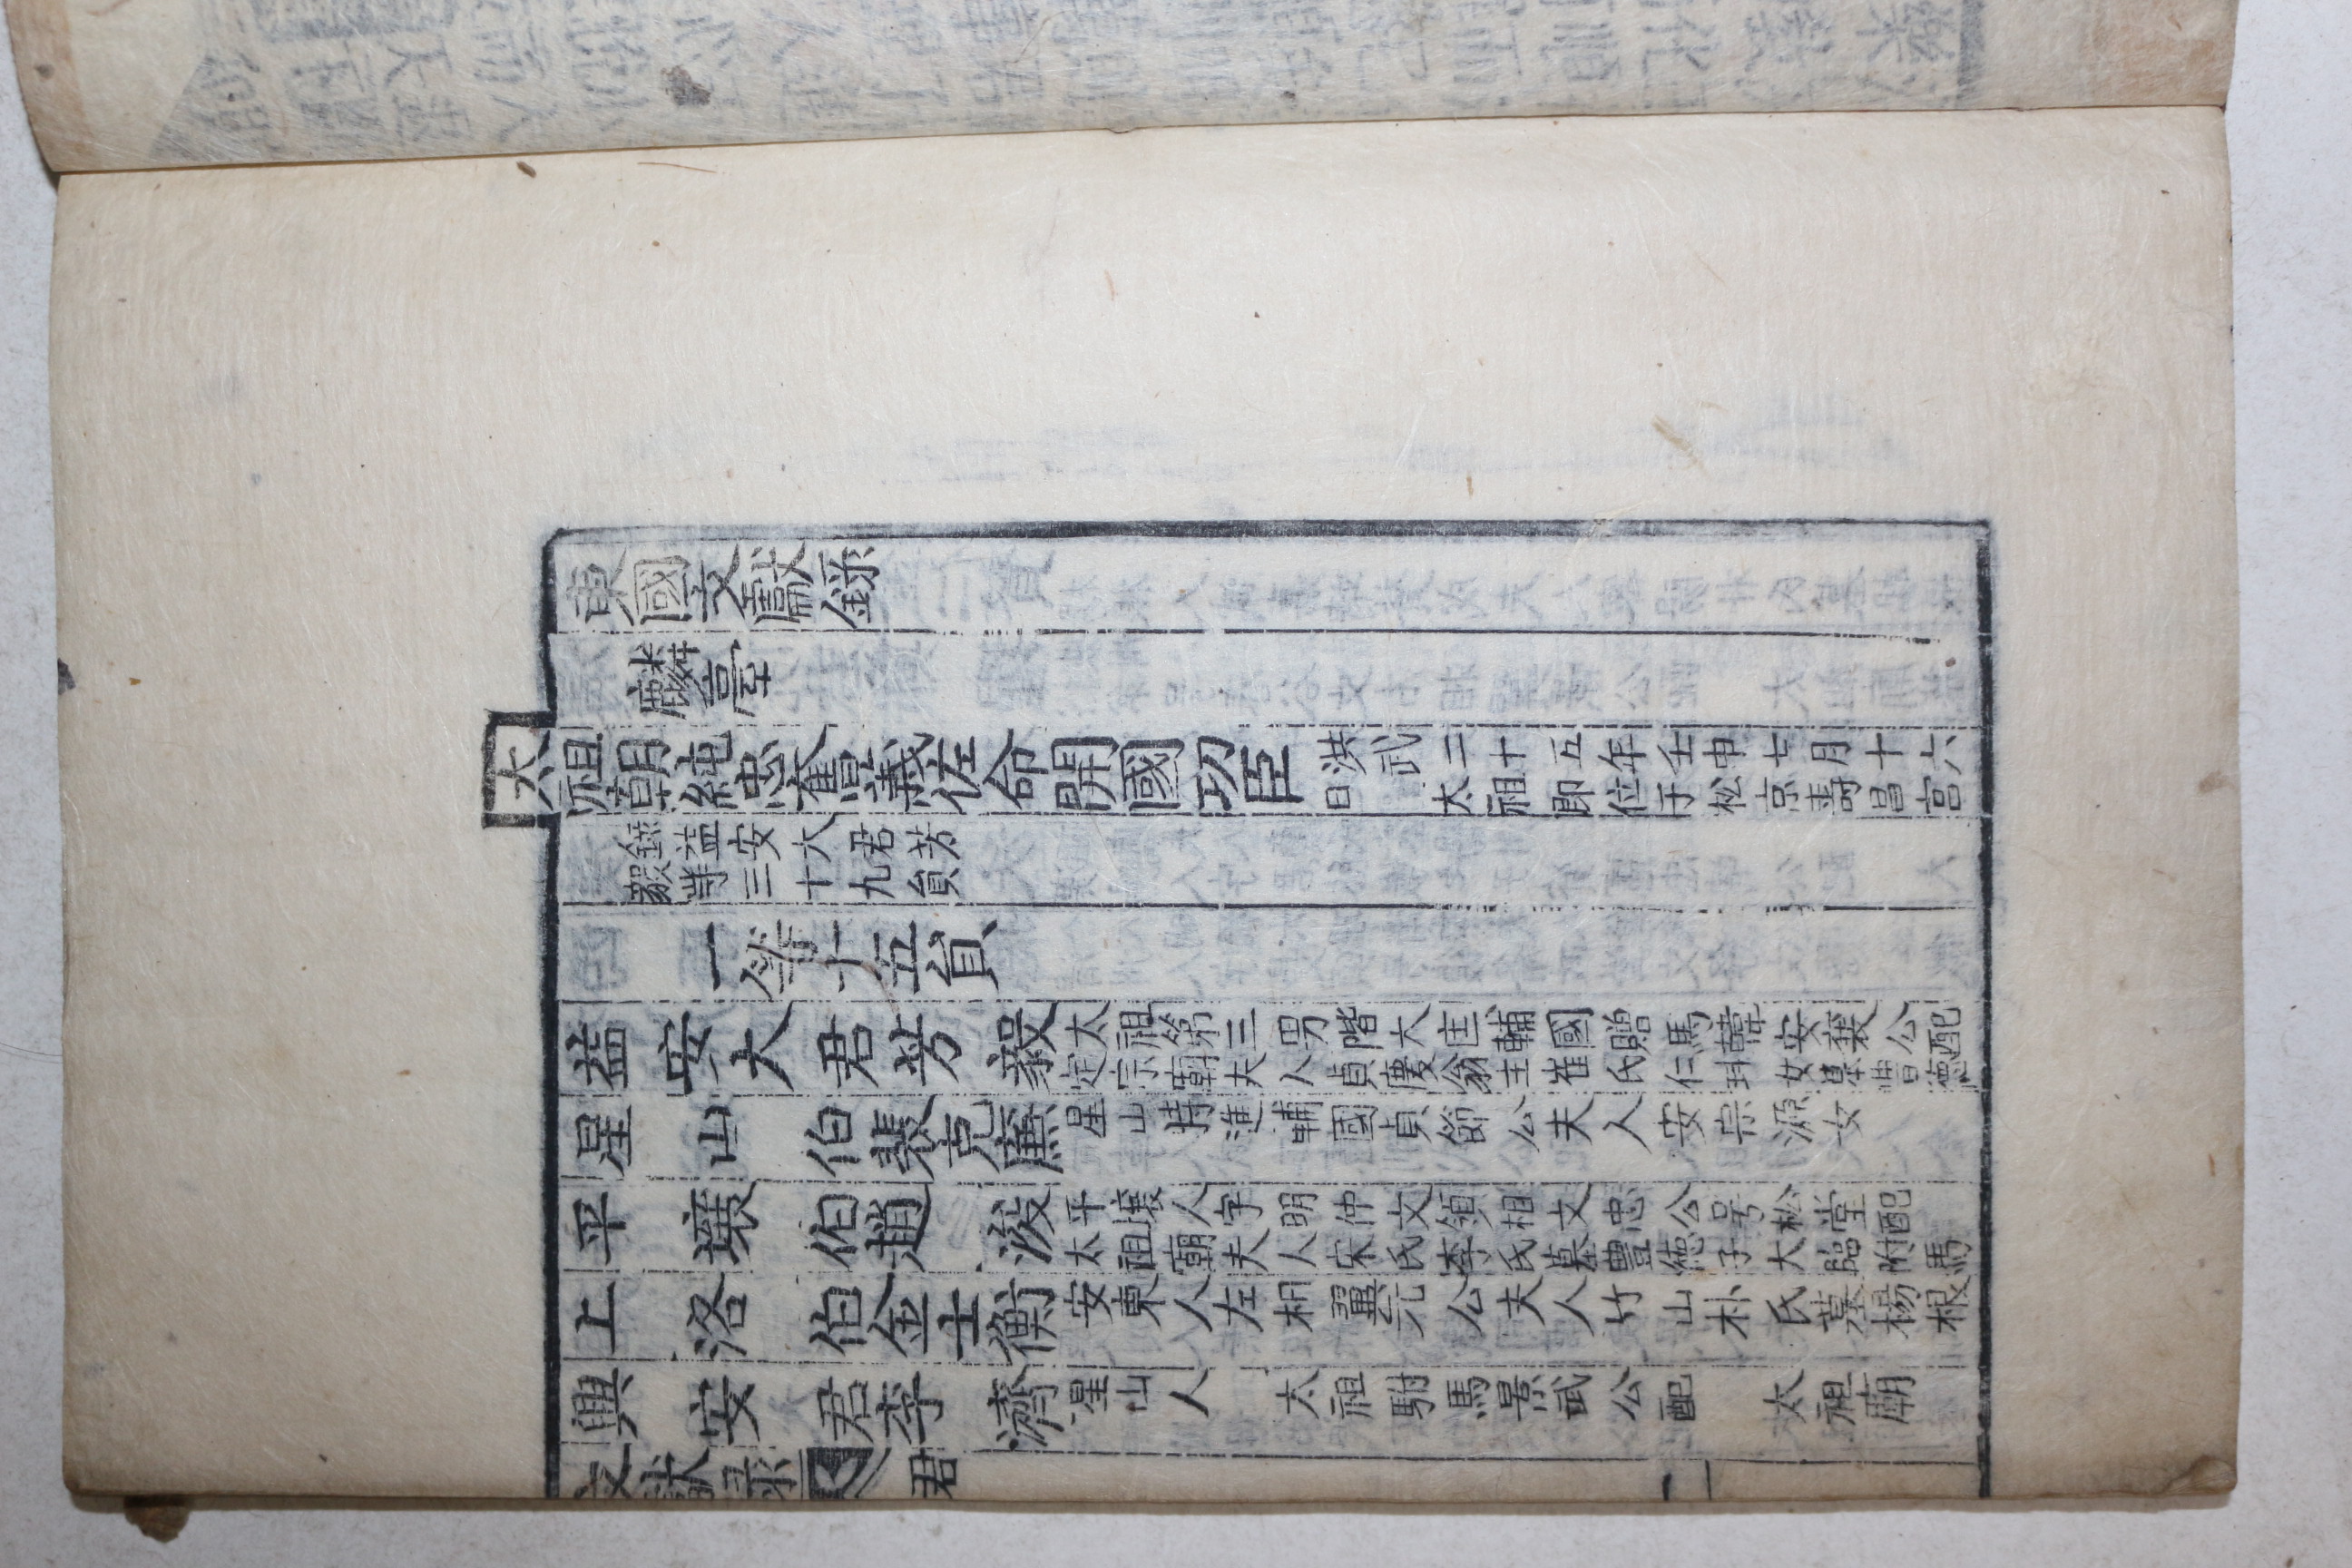 東國文獻錄
麟臺
太祖朝純忠奮義佐命開國功臣 洪武二十五年壬申七月十六
日 太祖即位于松京壽昌宮
錄益安大君芳
毅等三十九貟
一等十五貟
益安大君芳毅 太祖第三男階大匡輔國贈馬韓安襄公配
定宗廟夫人貞慶翁主崔氏仁㺶女墓豊德
星山伯裴克廉 星山特進輔國貞節公夫人安宗源女
平壤伯趙浚 平壤人字明仲文領相文忠公号松堂配
太祖廟夫人宋氏李氏墓豊德子大臨附馬
上洛伯金士衡 安東人左相翼元公夫人竹山朴氏墓楊根
興安君李濟 星山人 太祖駙馬景武公配 太祖廟
文獻录 君 一